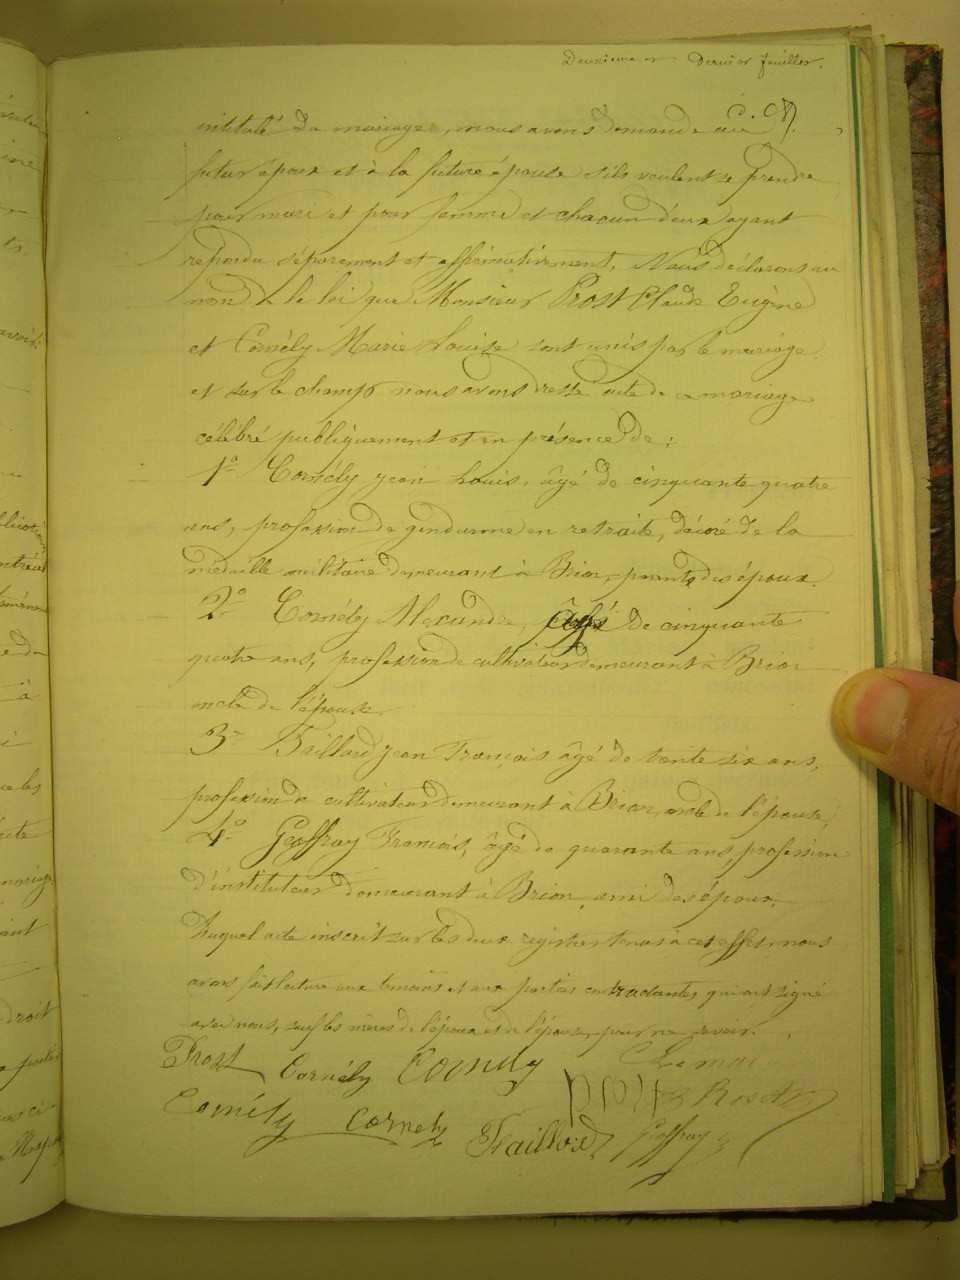 Deuxième et dernier feuillet.
C. M.
intitulé du mariage, nous avons demandé au
futur époux et à la future épouse s'ils veulent se prendre
pour mari et pour femme et chacun d'eux ayant
repondu séparement et affirmativement, Nous déclarons au
nom de la loi que Monsieur Prost Claude Eugène
et Cornély Marie Louise sont unis par le mariage
et sur le champ nous avons dressé acte de ce mariage
célébré publiquement et en présence de :
1° Cornély Jean Louis, âgé de cinquante quatre
ans, profession de gendarme en retraite, décoré de la
médaille militaire demeurant à Brion, parent des époux.
2° Cornély Alexandre, âgé de cinquante
quatre ans, profession de cultivateur demeurant à Brion
oncle de l'épouse.
3° Taillard Jean François âgé de trente six ans,
profession de cultivateur demeurant à Brion, oncle de l'épouse,
4° Geoffray François, âgé de quarante ans, profession
d'instituteur demeurant à Brion, ami des époux.
Duquel acte inscrit sur les deux registres tenus à cet effet, nous
avons fait lecture aux témoins et aux parties contractantes qui ont signé
avec nous, sauf les mères de l'époux et de l'épouse, pour ne savoir.
Prost Cornély Cornély Le mai
Prost Rosset
Cornély Cornely Taillard Geoffray